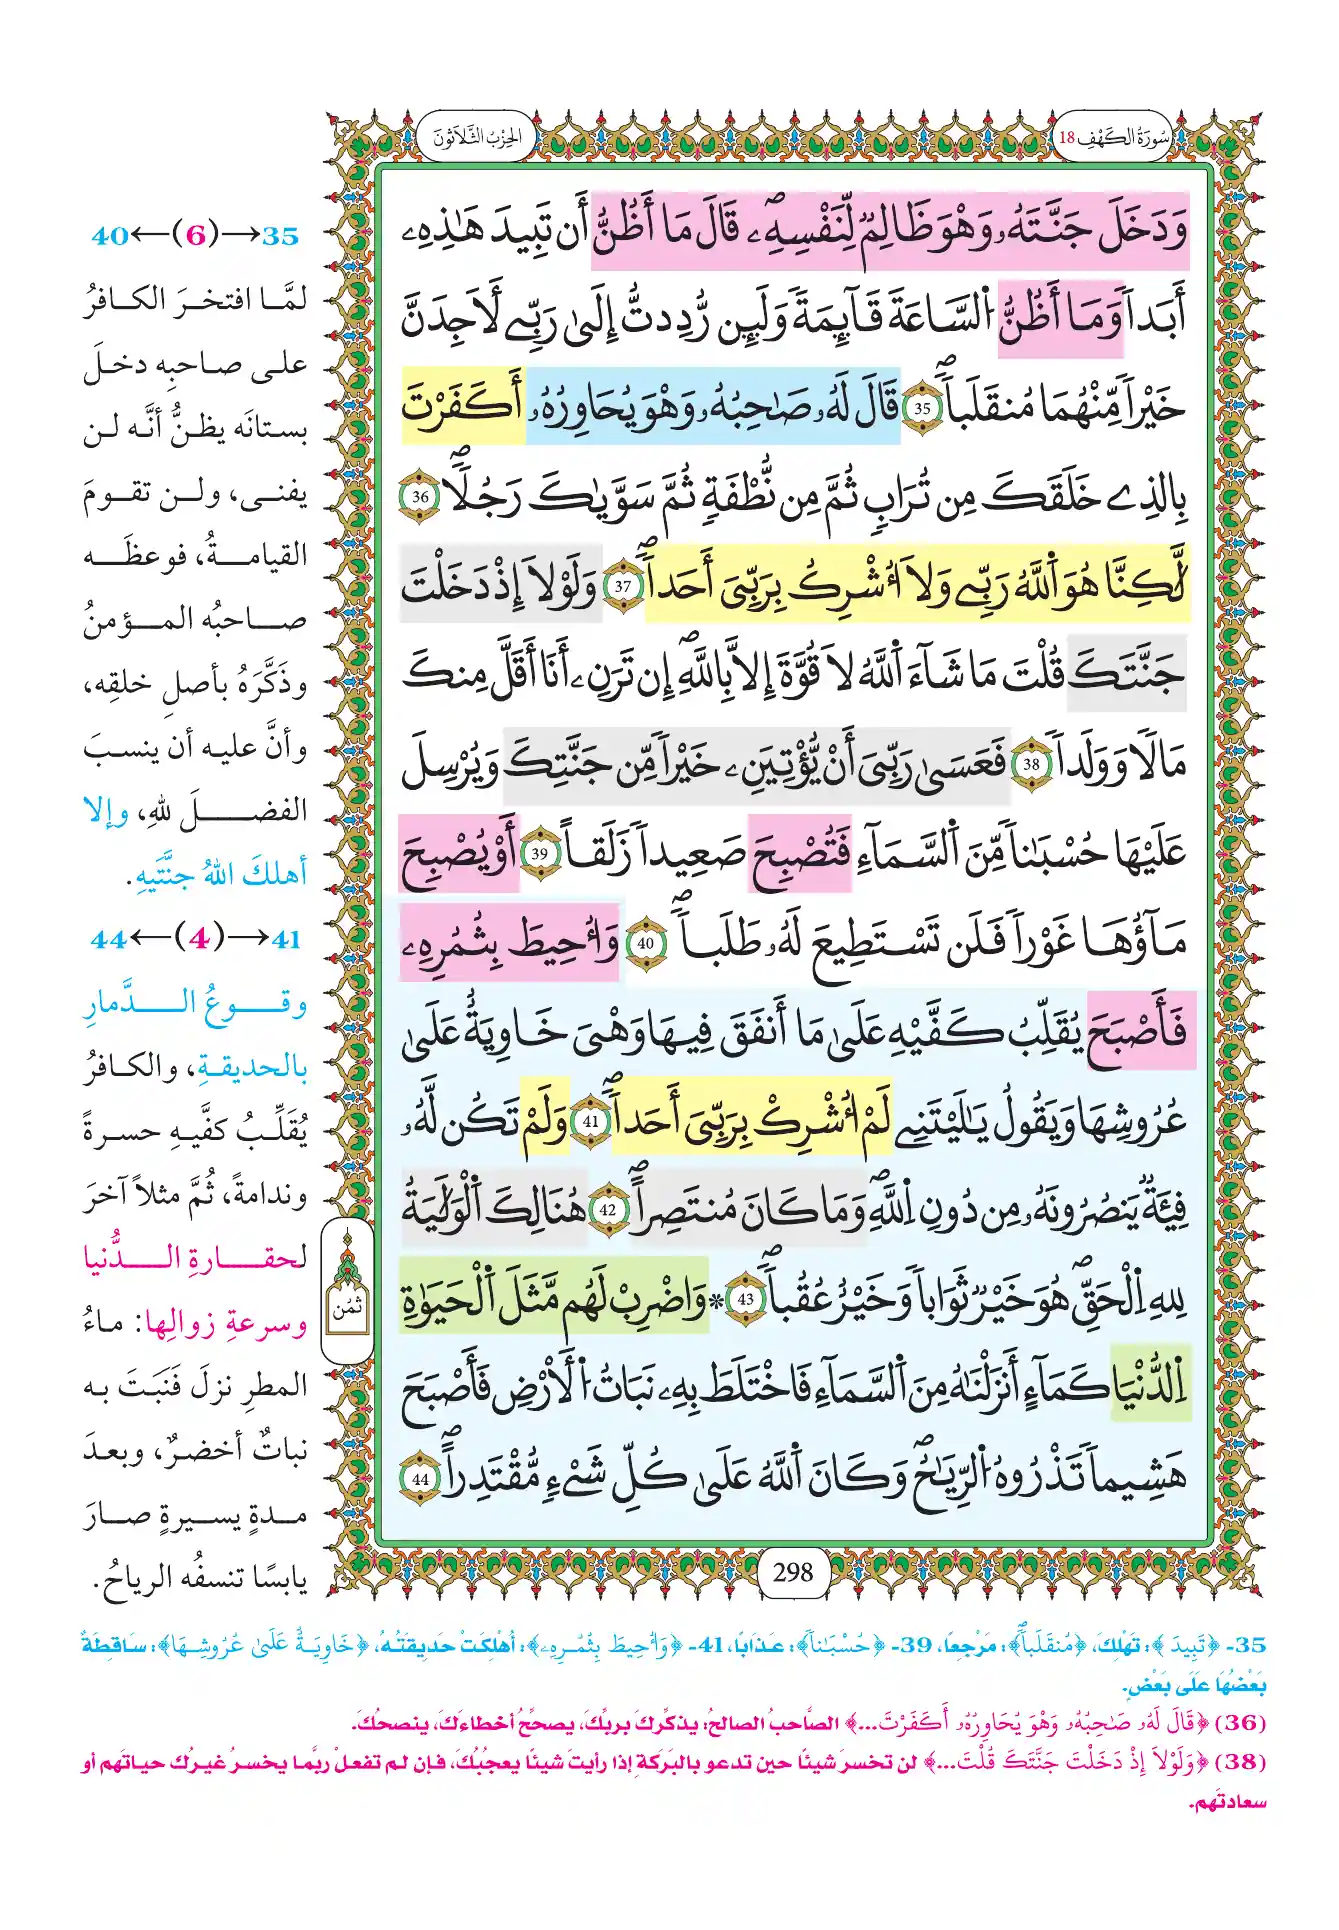 سُورَةُ الكَهْفِ 18
الحِزْبُ الثَّلَاثُونَ
وَدَخَلَ جَنَّتَهُۥ وَهْوَ ظَالِمٞ لِّنَفْسِهِۦ قَالَ مَا أَظُنُّ أَن تَبِيدَ هَٰذِهِۦ
أَبَداٗ وَمَا أَظُنُّ اُ۬لسَّاعَةَ قَآئِمَةٗ وَلَئِن رُّدِدتُّ إِلَىٰ رَبِّے لَأَجِدَنَّ
خَيْراٗ مِّنْهُمَا مُنقَلَباٗ 35 قَالَ لَهُۥ صَٰحِبُهُۥ وَهْوَ يُحَاوِرُهُۥ أَكَفَرْتَ
بِالذِے خَلَقَكَ مِن تُرَابٖ ثُمَّ مِن نُّطْفَةٖ ثُمَّ سَوَّيٰكَ رَجُلاٗ 36
لَّٰكِنَّا هُوَ اَ۬للَّهُ رَبِّے وَلَا أُشْرِكُ بِرَبِّيَ أَحَداٗ 37 وَلَوْلَا إِذْ دَخَلْتَ
جَنَّتَكَ قُلْتَ مَا شَآءَ اَ۬للَّهُ لَا قُوَّةَ إِلَّا بِاللَّهِ إِن تَرَنِۦ أَنَا أَقَلَّ مِنكَ
مَالاٗ وَوَلَداٗ 38 فَعَسَىٰ رَبِّيَ أَنْ يُّؤْتِيَنِۦ خَيْراٗ مِّن جَنَّتِكَ وَيُرْسِلَ
عَلَيْهَا حُسْبَاناٗ مِّنَ اَ۬لسَّمَآءِ فَتُصْبِحَ صَعِيداٗ زَلَقاً 39 أَوْ يُصْبِحَ
مَآؤُهَا غَوْراٗ فَلَن تَسْتَطِيعَ لَهُۥ طَلَباٗ 40 وَأُحِيطَ بِثُمُرِهِۦ
فَأَصْبَحَ يُقَلِّبُ كَفَّيْهِ عَلَىٰ مَا أَنفَقَ فِيهَا وَهْيَ خَاوِيَةٌ عَلَىٰ
عُرُوشِهَا وَيَقُولُ يَٰلَيْتَنِے لَمْ أُشْرِكْ بِرَبِّيَ أَحَداٗ 41 وَلَمْ تَكُن لَّهُۥ
فِئَةٞ يَنصُرُونَهُۥ مِن دُونِ اِ۬للَّهِ وَمَا كَانَ مُنتَصِراً 42 هُنَالِكَ اَ۬لْوَلَٰيَةُ
لِلهِ اِ۬لْحَقِّ هُوَ خَيْرٞ ثَوَاباٗ وَخَيْرٌ عُقُباٗ 43 * وَاضْرِبْ لَهُم مَّثَلَ اَ۬لْحَيَوٰةِ
اِ۬لدُّنْيَا كَمَآءٍ أَنزَلْنَٰهُ مِنَ اَ۬لسَّمَآءِ فَاخْتَلَطَ بِهِۦ نَبَاتُ اُ۬لْأَرْضِ فَأَصْبَحَ
هَشِيماٗ تَذْرُوهُ اُ۬لرِّيَٰحُ وَكَانَ اَ۬للَّهُ عَلَىٰ كُلِّ شَےْءٖ مُّقْتَدِراً 44
ثمن
298
35→(6)←40
لمَّا افتخرَ الكافرُ
على صاحبِه دخلَ
بستانَه يظنُّ أنَّه لن
يفنى، ولن تقومَ
القيامةُ، فوعظَه
صاحبُه المؤمنُ
وذَكَّرَهُ بأصلِ خلقِه،
وأنَّ عليه أن ينسبَ
الفضلَ للهِ، وإلا
أهلكَ اللهُ جنَّتَيهِ.
41→(4)←44
وقوعُ الدَّمارِ
بالحديقةِ، والكافرُ
يُقَلِّبُ كفَّيهِ حسرةً
وندامةً، ثُمَّ مثلاً آخرَ
لحقارةِ الدُّنيا
وسرعةِ زوالِها: ماءُ
المطرِ نزلَ فَنَبَتَ به
نباتٌ أخضرٌ، وبعدَ
مدةٍ يسيرةٍ صارَ
يابسًا تنسفُه الرياحُ.
35- ﴿تَبِيدَ﴾: تَهْلِكَ، ﴿مُنقَلَباٗ﴾: مَرْجِعًا، 39- ﴿حُسْبَاناٗ﴾: عَذَابًا، 41- ﴿وَأُحِيطَ بِثُمُرِهِۦ﴾: أُهْلِكَتْ حَدِيقَتُهُ، ﴿خَاوِيَةٌ عَلَىٰ عُرُوشِهَا﴾: سَاقِطَةٌ
بَعْضُهَا عَلَى بَعْضٍ.
(36) ﴿قَالَ لَهُۥ صَٰحِبُهُۥ وَهْوَ يُحَاوِرُهُۥ أَكَفَرْتَ...﴾ الصَّاحبُ الصالحُ: يذكِّركَ بربِّكَ، يصحِّحُ أخطاءَكَ، ينصحُكَ.
(38) ﴿وَلَوْلَا إِذْ دَخَلْتَ جَنَّتَكَ قُلْتَ...﴾ لن تخسرَ شيئًا حين تدعو بالبَرَكَةِ إذا رأيتَ شيئًا يعجبُكَ، فإن لم تفعلْ ربَّما يخسرُ غيرُك حياتَهم أو
سعادتَهم.